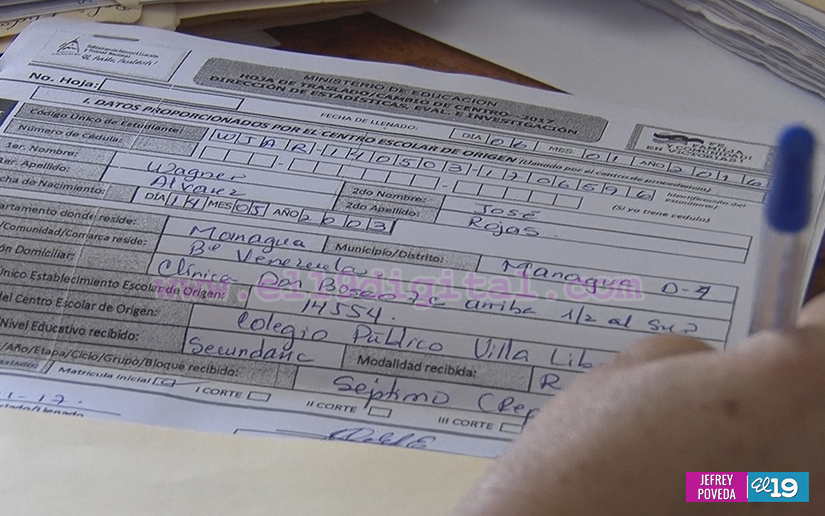 El Pueblo, Presidente!
MINISTERIO DE EDUCACION
HOJA DE TRASLADO/CAMBIO DE CENTRO - 2017
DIRECCIÓN DE ESTADÍSTICAS, EVAL. E INVESTIGACIÓN
No. Hoja:
FECHA DE LLENADO: DIA 06 MES 01 AÑO 2016
I. DATOS PROPORCIONADOS POR EL CENTRO ESCOLAR DE ORIGEN (Llenado por el centro de procedencia)
Código Único de Estudiante: WJAR140503-1206596
Número de Cédula: (Si yo tiene cedula)
1er. Nombre: Wagner 2do Nombre: José
1er. Apellido: Alvarez 2do Apellido: Rojas
cha de Nacimiento: DÍA 14 MES 05 AÑO 2003
partamento donde reside: Managua Municipio/Distrito: Managua D-4
/Comunidad/Comarca reside: Bo Venezuela
ón Domiciliar: Clinica Don Bosco 7c arriba 1/2 al Sur
Único Establecimiento Escolar de Origen: 14554.
del Centro Escolar de Origen: Colegio Público Villa Lib
Nivel Educativo recibido: Secundaria Modalidad recibida: R
/Año/Etapa/Ciclo/Grupo/Bloque recibido: Séptimo (Rep
Matricula Inicial I CORTE II CORTE III CORTE
www.el19digital.com
JEFREY
POVEDA
El 19